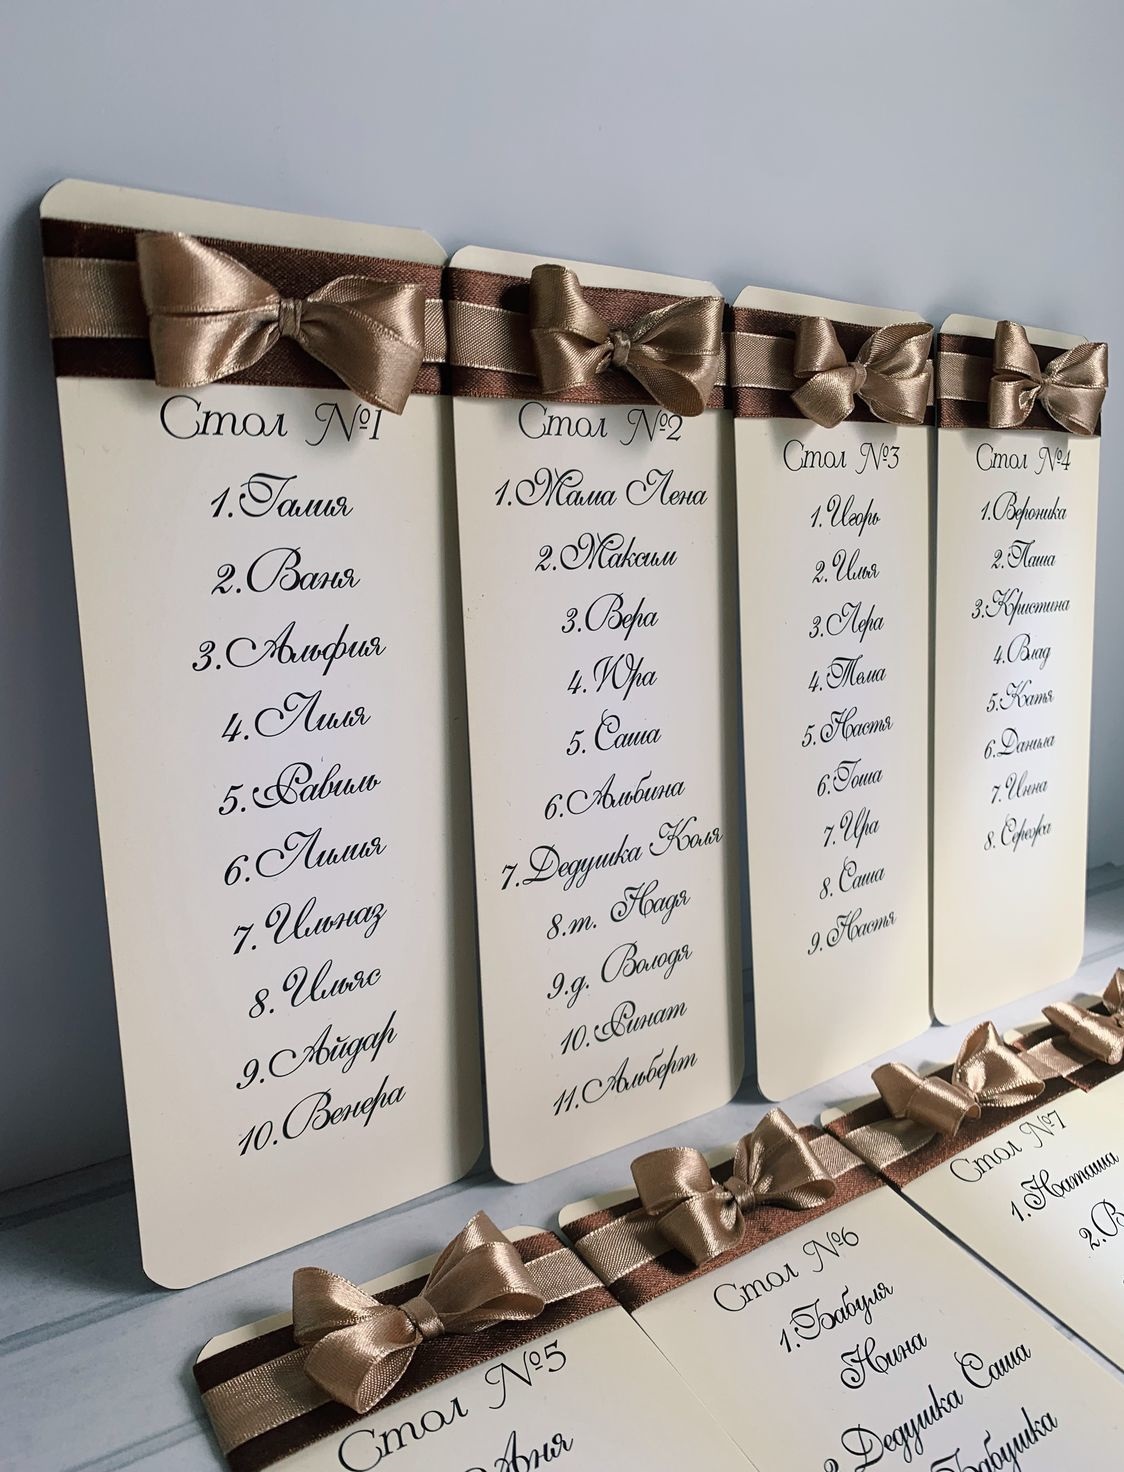 Стол №1
1.Галия
2.Ваня
3.Альфия
4.Лиля
5.Равиль
6.Лилия
7.Ильназ
8.Ильяс
9.Айдар
10.Венера
Стол №2
1.Мама Лена
2.Максим
3.Вера
4.Юра
5.Саша
6.Альбина
7.Дедушка Коля
8.т. Надя
9.д. Володя
10.Ринат
11.Альберт
Стол №3
1.Игорь
2.Илья
3.Лера
4.Тёма
5.Настя
6.Гоша
7.Ира
8.Саша
9.Настя
Стол №4
1.Вероника
2.Паша
3.Кристина
4.Влад
5.Катя
6.Данила
7.Инна
8.Сережа
Стол №5
Аня
Стол №6
1.Бабуля
Нина
2.Дедушка Саша
Бабушка
Стол №7
1.Наташа
2.В